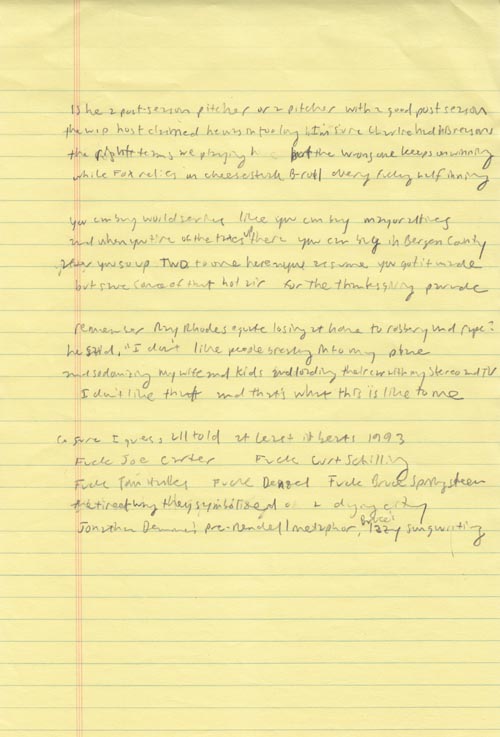 Is he a post-season pitcher or a pitcher with a good post season
the WIP host claimed he was in too long I'm sure Charlie had his reasons
the right team's we playing but the wrong one keeps on winning
while Fox relies on cheesesteak B-roll every fucking half inning
you can buy world series like you can buy mayoralties
and when you tire of the taxes there you can buy in Bergen County
you go up TWO to one here you assume you got it made
but save some of that hot air for the thanksgiving parade
remember Ray Rhodes equate losing at home to robbery and rape?
he said, "I don't like people breaking into my place
and sodomizing my wife and kids and loading their car with my stereo and TV
I don't like that and that's what this is like to me
So sure I guess, all told at least it beats 1993
Fuck Joe Carter Fuck Curt Schilling
Fuck Tom Hanks Fuck Denzel Fuck Bruce Springsteen
the tired way they symbolized a dying city
Jonathan Demme's pre-Rendell metaphor, Bruce's lazy songwriting